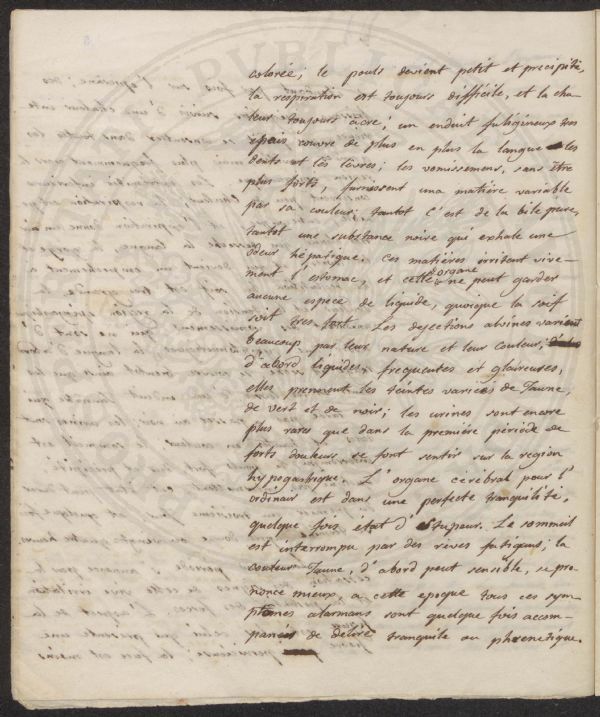 colorée; le pouls devient petit et precipité,
la respiration est toujours difficile, et la cha-
leur toujours acre; un enduit fuligineux tres
epais couvre de plus en plus la langue les
dents et les levres; les vomissemens, sans être
plus forts, furnissent una matiére variable
par sa couleur; tantot c'est de la bile pure,
tantot une substance noire qui exhale une
odeur hépatique. Ces matiéres irritent vive-
ment l'estomac, et cette organe ne peut garder
aucune espece de liquide, quoique la soif
soit tres fort. Les dejections alvines varient
beaucoup par leur nature et leur couleur;
d'abord liquides, frequentes et glaireuses,
elles prennent les teintes variées de Jaune,
de vert et de noir; les urines sont encore
plus rares que dans la premiére période de
forts douleurs se font sentir sur la region
hypogastrique. L'organe cérébral pour l'
ordinair est dans une perfecte tranquilité,
quelque fois état d'stupeur. Le sommeil
est interrompu par des rives fatigans; la
couleur Jaune, d'abord peut sensible, se pro-
nonce mieux, a cette epoque tous ces sym-
ptomes alarmans sont quelque fois accom-
panies de deliré tranquile ou phrenetique.